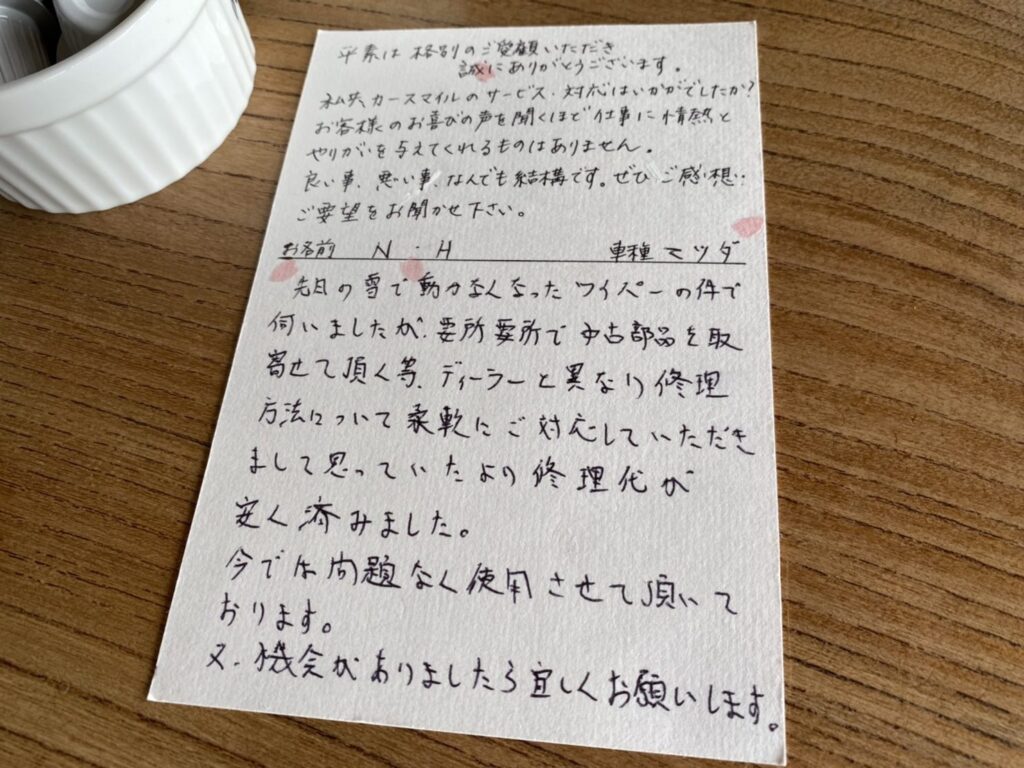 平素は格別のご愛顧いただき
誠にありがとうございます。
私共、カースマイルのサービス・対応はいかがでしたか?
お客様のお喜びの声を聞くほど仕事に情熱と
やりがいを与えてくれるものはありません。
良い事、悪い事、なんでも結構です。ぜひご感想・
ご要望をお聞かせ下さい。
お名前 N・H 車種 マツダ
先日の雪で動かなくなったワイパーの件で
伺いましたが、要所要所で中古部品を取
寄せて頂く等、ディーラーと異なり修理
方法について柔軟にご対応していただき
まして思っていたより修理代が
安く済みました。
今では問題なく使用させて頂いて
おります。
又、機会がありましたら宜しくお願いします。